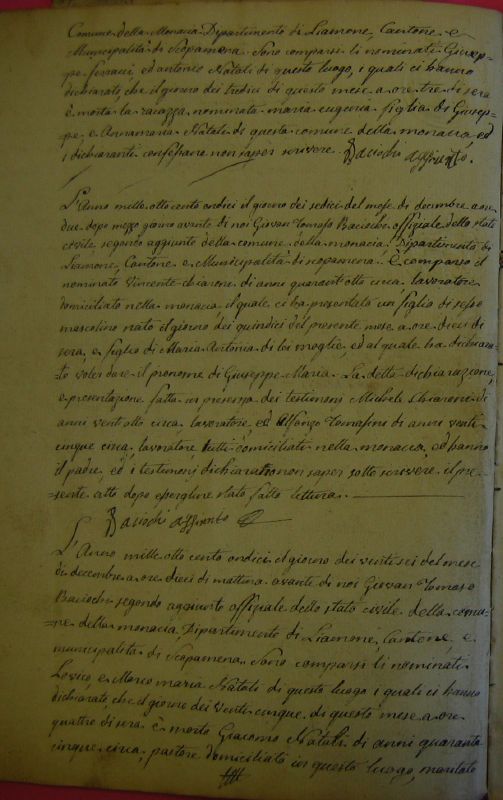 Comune della Monaca Dipartimento di Liamone, Cantone e
Municipalità di Scopamena. Sono comparsi li nominati Giusep-
pe ed Antonio Natali di questo luogo, i quali ci hanno
dichiarati, che il giorno dei tredici di questo mese a ore tre di sera
è morta la ragazza nominata maria eugenia figlia di Giusep-
pe e Annamaria Natale di questa comune della monaca ed
i dichiaranti confessano non saper scrivere. Baciochi aggiunto.
L'Anno mille otto cento ondici il giorno dei sedici del mese di decembre a ore
due dopo mezzo giorno avante di noi Giovan Tomaso Baciochi offiziale dello stato
civile segondo aggiunto della comune della monacia, Dipartimento di
Liamone, Cantone e Municipalità di scopamena. È comparso il
nominato Vincente chiarone di anni quarant'otto circa, lavoratore
domiciliato nella monacca, il quale ci ha presentato un figlio di sesso
mascolino nato il giorno dei quindici del presente mese a ore dieci di
sera, e figlio di Maria Antonia di lei moglie, ed al quale ha dichiara-
to voler dare il pronome di Giuseppe Maria. La detta dichiarazione,
e presentazione fatta in presenza dei testimoni Michele Chiaroni di
anni vent'otto circa, lavoratore, ed Alfonzo Tomasini di anni venti
cinque circa, lavoratore tutti domiciliati nella monacca, ed hanno
il padre, ed i testimonj dichiarato non saper sotto scrivere il pre-
sente atto dopo essergline stato fatto lettura.
Baciochi aggiunto
L'Anno mille otto cento ondici il giorno dei venti sei del mese
di decembre a ore dieci di mattina avante di noi Giovan Tomaso
Baciochi segondo aggiunto offiziale dello stato civile della comu-
ne della monacia, Dipartimento di Liamone, Cantone e
municipalità di Scopamena. Sono comparsi li nominati
e Marco maria Natali di questo luogo i quali ci hanno
dichiarati, che il giorno dei venti cinque di questo mese a ore
quattro di sera è morto Giacomo Natali di anni quaranta
cinque circa, pastore domiciliato in questo luogo, maritato